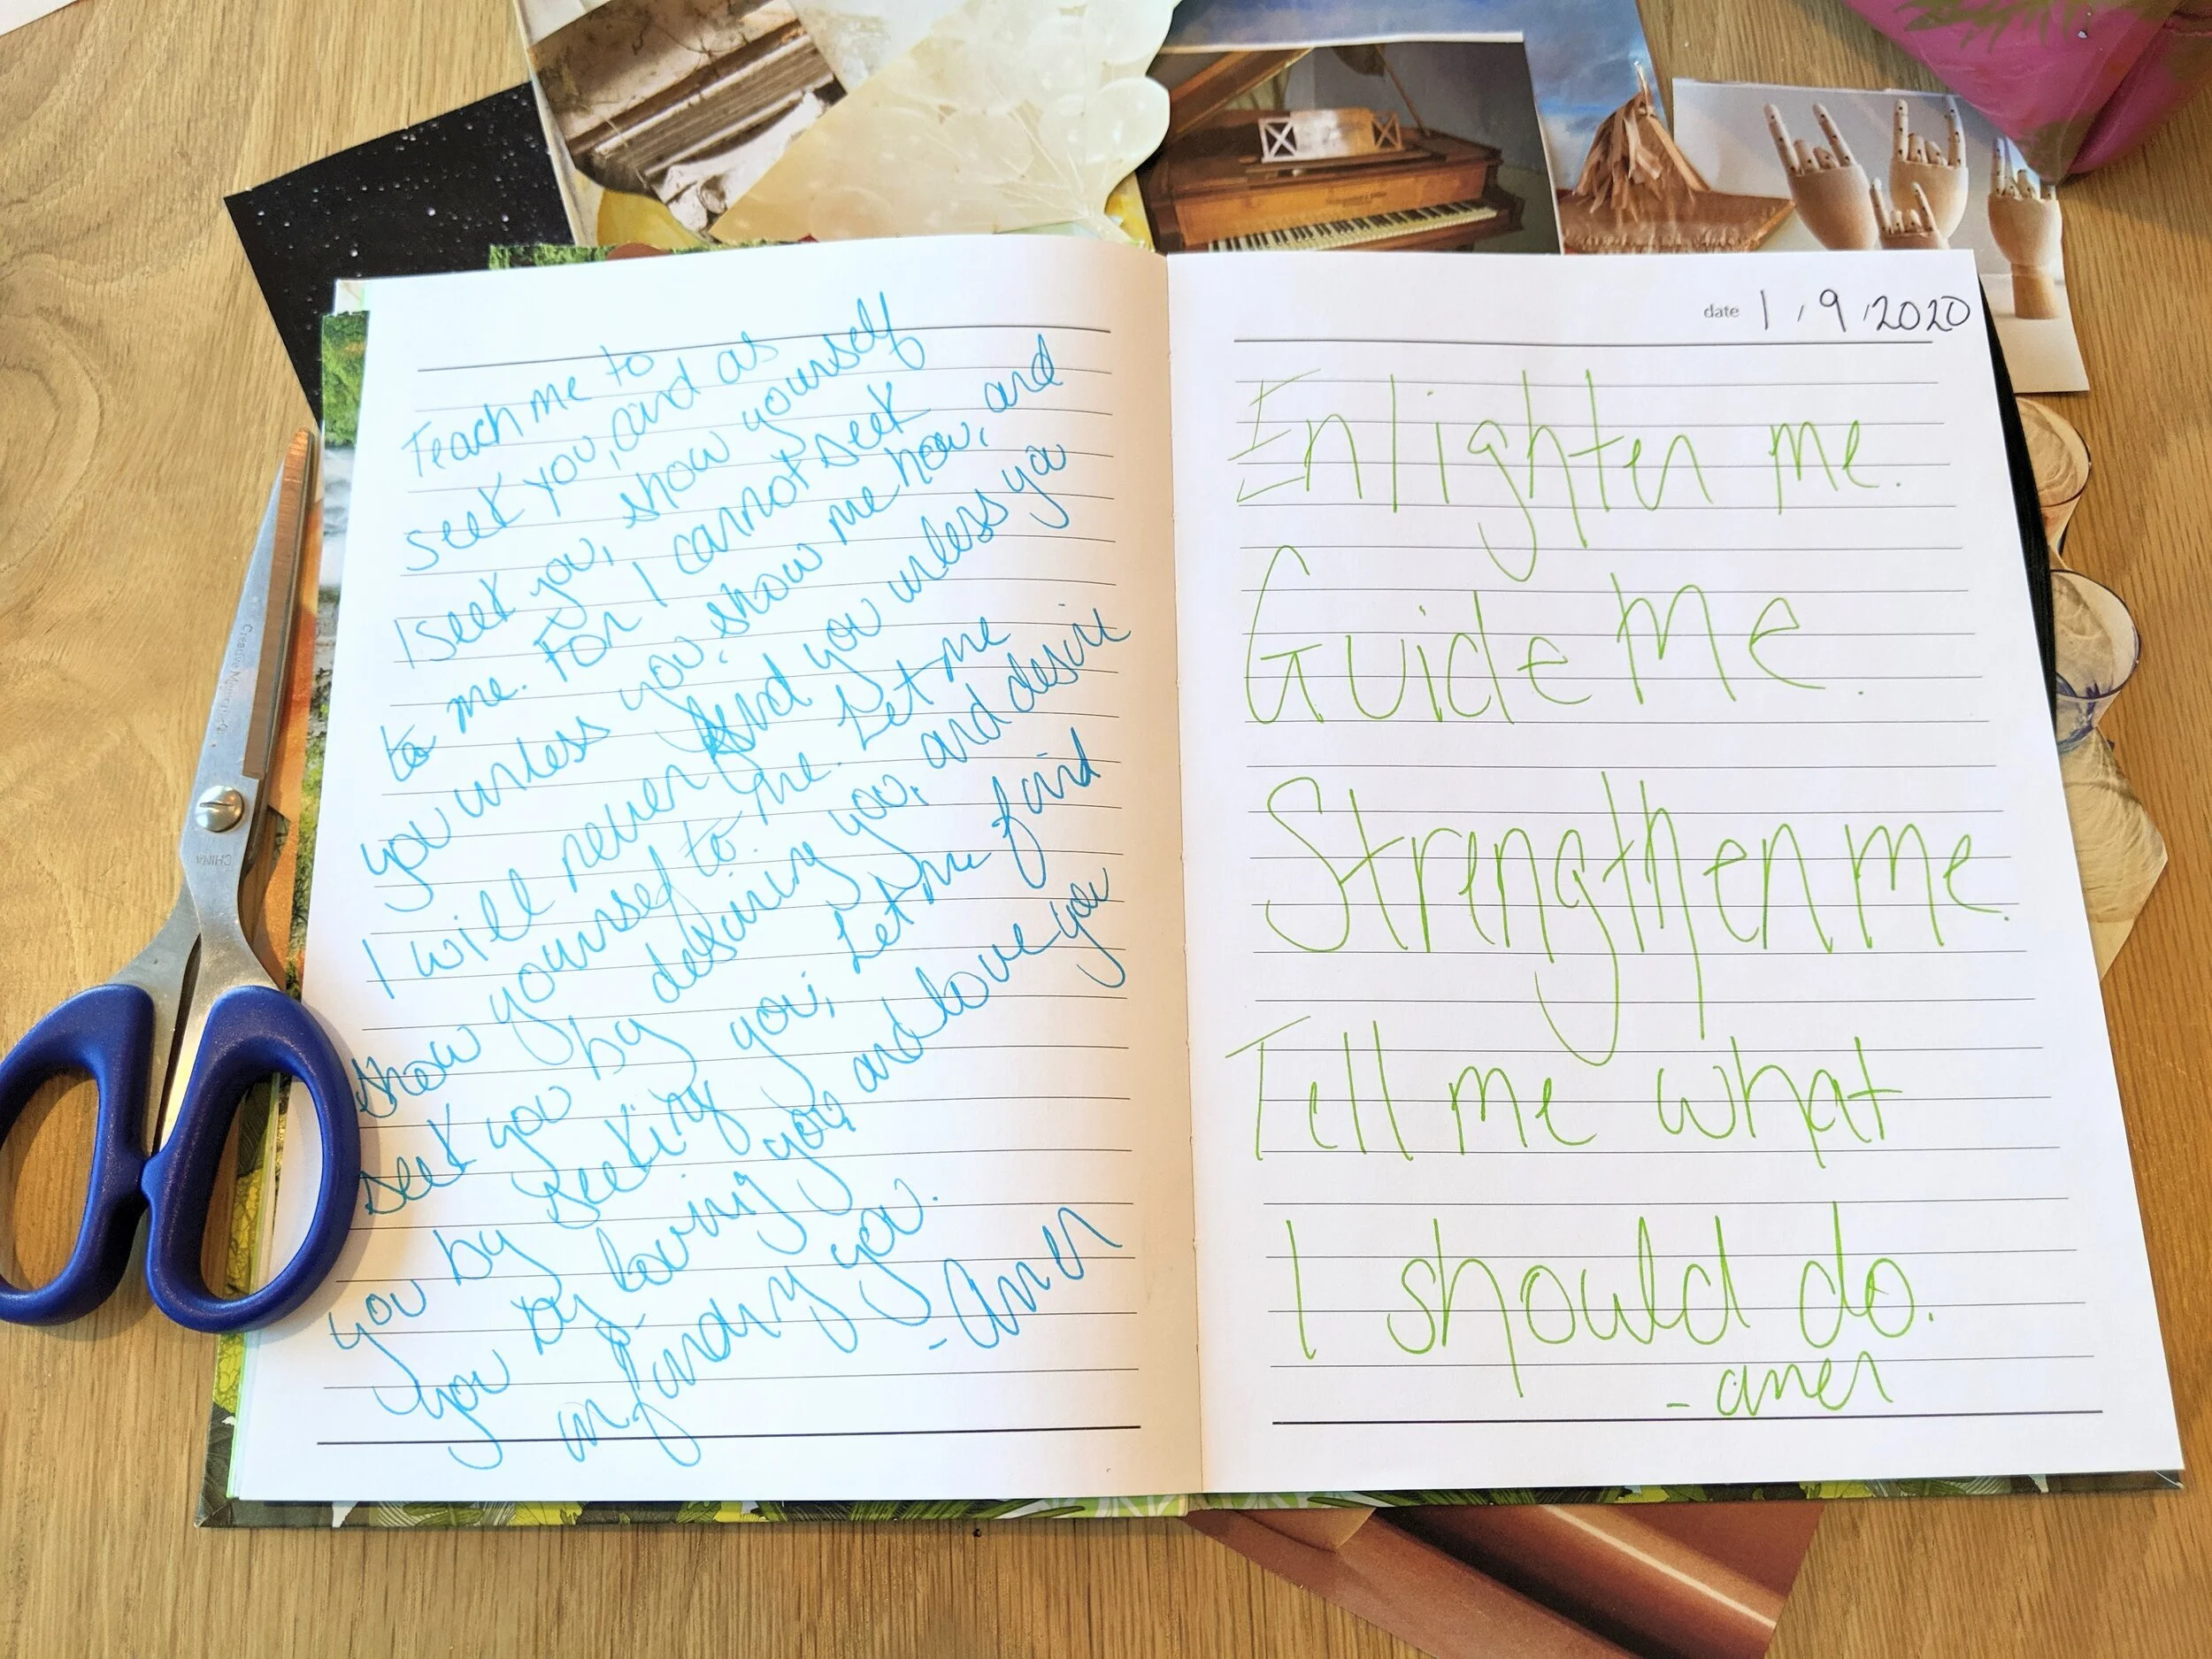 Teach me to
seek you, and as
I seek you, show yourself
to me. For I cannot seek
you unless you show me how, and
I will never find you unless you
show yourself to me. Let me
seek you by desiring you, and desire
you by seeking you; Let me find
you by loving you, and love you
in finding you.
- amen
date 1/9/2020
Enlighten me.
Guide Me.
Strengthen me.
Tell me what
I should do.
- amen
CHINA